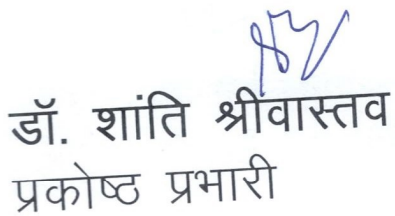 डॉ. शांति श्रीवास्तव
प्रकोष्ठ प्रभारी